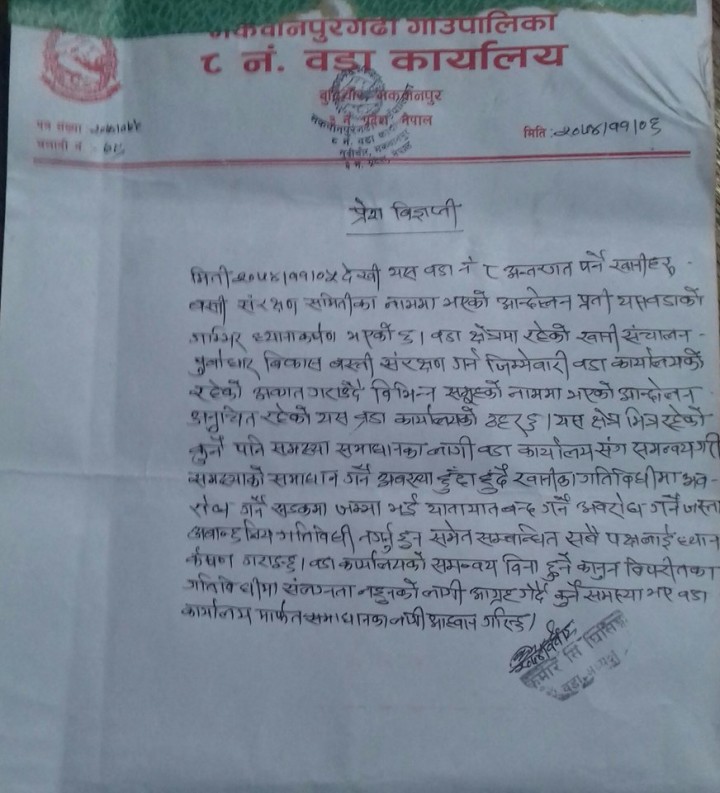 मकवानपुरगढी गाउँपालिका
८ नं. वडा कार्यालय
मकवानपुर
३ नं. प्रदेश, नेपाल
पत्र संख्या
चलानी नं.
मिति : २०७४।११।०६
प्रेश विज्ञप्ती
मिती २०७४।११।०५ देखी यस वडा नं ८ अन्तरगत पर्ने खानीहरु
वस्ती संरक्षण समितीका नाममा भएको आन्दोलन प्रती यस वडाको
गम्भिर ध्यानाकर्षण भएको छ। वडा क्षेत्रमा रहेको खानी संचालन
पुर्वाधार विकास वस्ती संरक्षण गर्ने जिम्मेवारी वडा कार्यालयको
रहेको अवगत गराउँदै विभिन्न समुहको नाममा भएको आन्दोलन
अनुचित रहेको यस वडा कार्यालयको ठहर छ। यस क्षेत्र भित्र रहेको
कुनै पनि समस्या समाधानका लागी वडा कार्यालय संग समन्वय गरी
समस्याको समाधान गर्ने अवस्था हुँदा हुँदै खानीका गतिविधीमा अव-
रोध गर्ने सडकमा जम्मा भई यातायात बन्द गर्ने अवरोध गर्ने जस्ता
अवान्छनिय गतिविधी नगर्नु हुन समेत सम्बन्धित सबै पक्षलाई ध्यान
कर्षण गराउछ। वडा कार्यालयको समन्वय विना हुने कानुन विपरीतका
गतिविधीमा संलग्नता नहुनको लागी आग्रह गर्दै कुनै समस्या भए वडा
कार्यालय मार्फत समाधानका लागी आह्वान गरिन्छ।